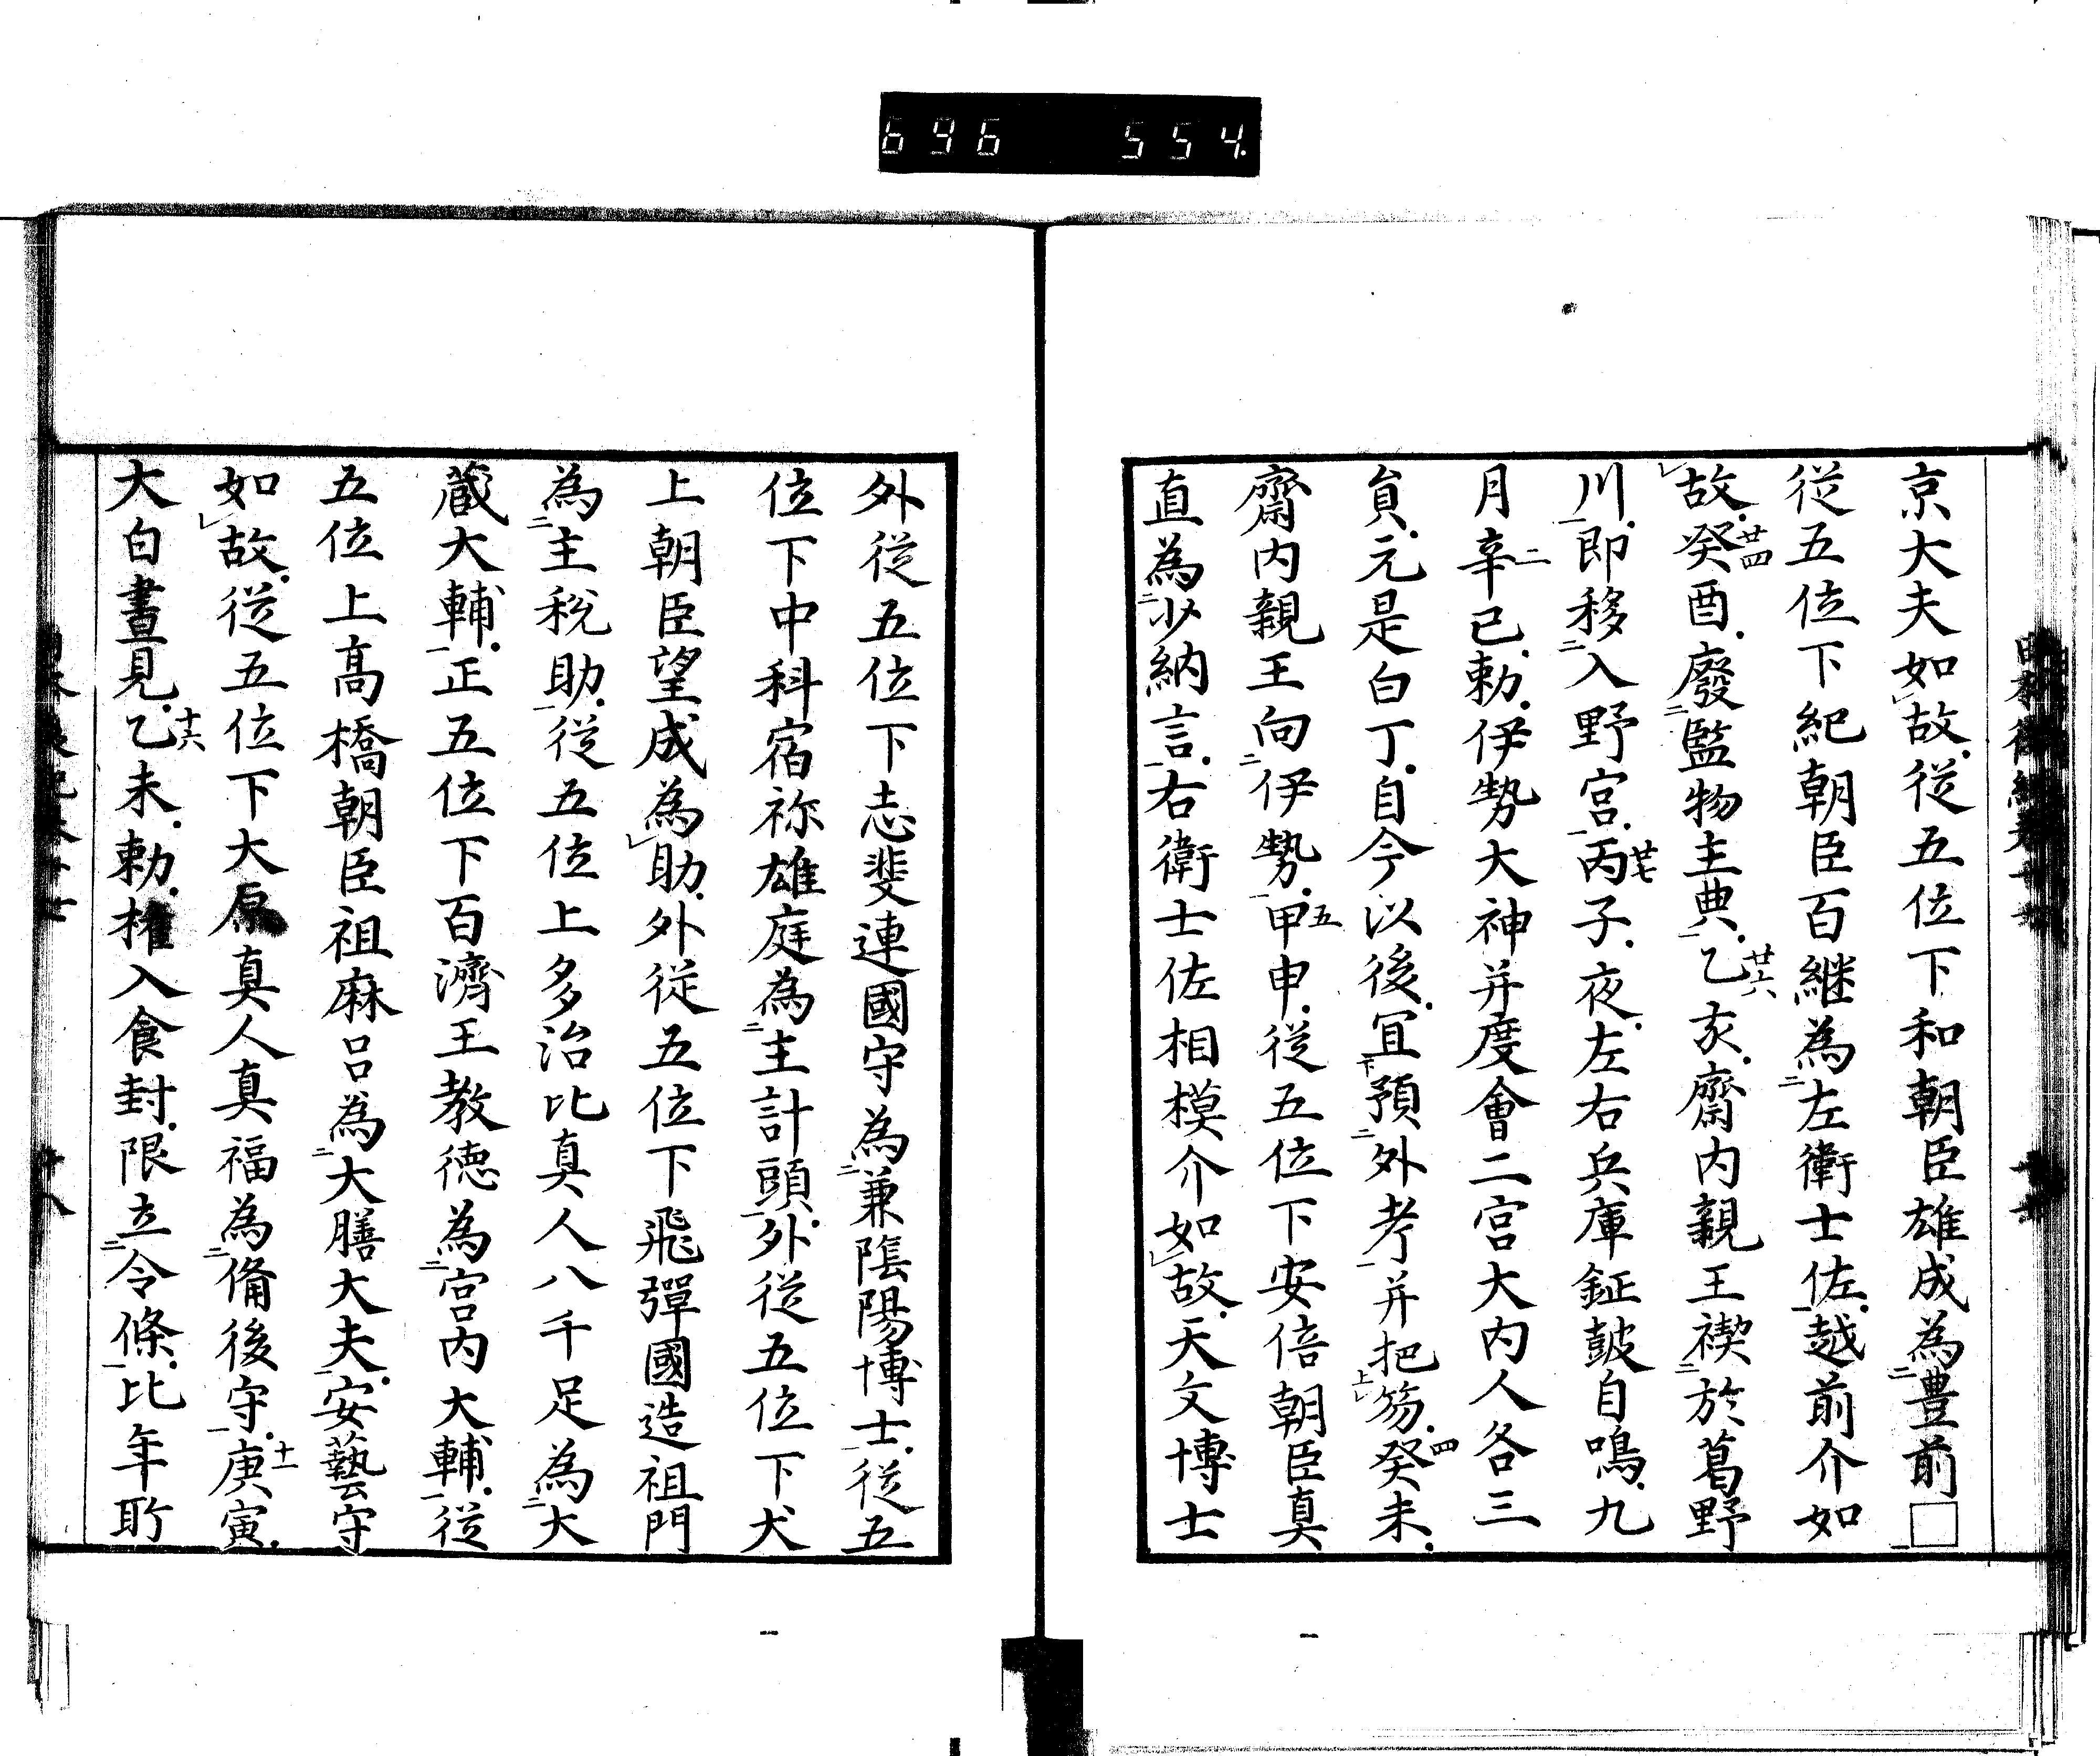 696 554
京大夫如故從五位下和朝臣雄成為豊前□
從五位下紀朝臣百継為左衛士佐越前介如
故癸酉廢監物主典乙亥齋内親王禊於葛野
川即移入野宮丙子夜左右兵庫鉦鼓自鳴九
月辛已勅伊勢大神并度會二宮大内人各三
負元是白丁自今以後冝預外考并把笏癸未
齋内親王向伊勢甲申從五位下安倍朝臣真
直為少納言右衛士佐相模介如故天文博士
外從五位下志斐連國守為兼陰陽博士從五
位下中科宿祢雄庭為主計頭外從五位下犬
上朝臣望成為助外從五位下飛彈國造祖門
為主税助從五位上多治比真人八千足為大
蔵大輔正五位下百濟王教徳為宮内大輔從
五位上高橋朝臣祖麻呂為大膳大夫安藝守
如故從五位下大原真人真福為備後守庚寅
大白晝見乙未勅權入食封限立令條比年所